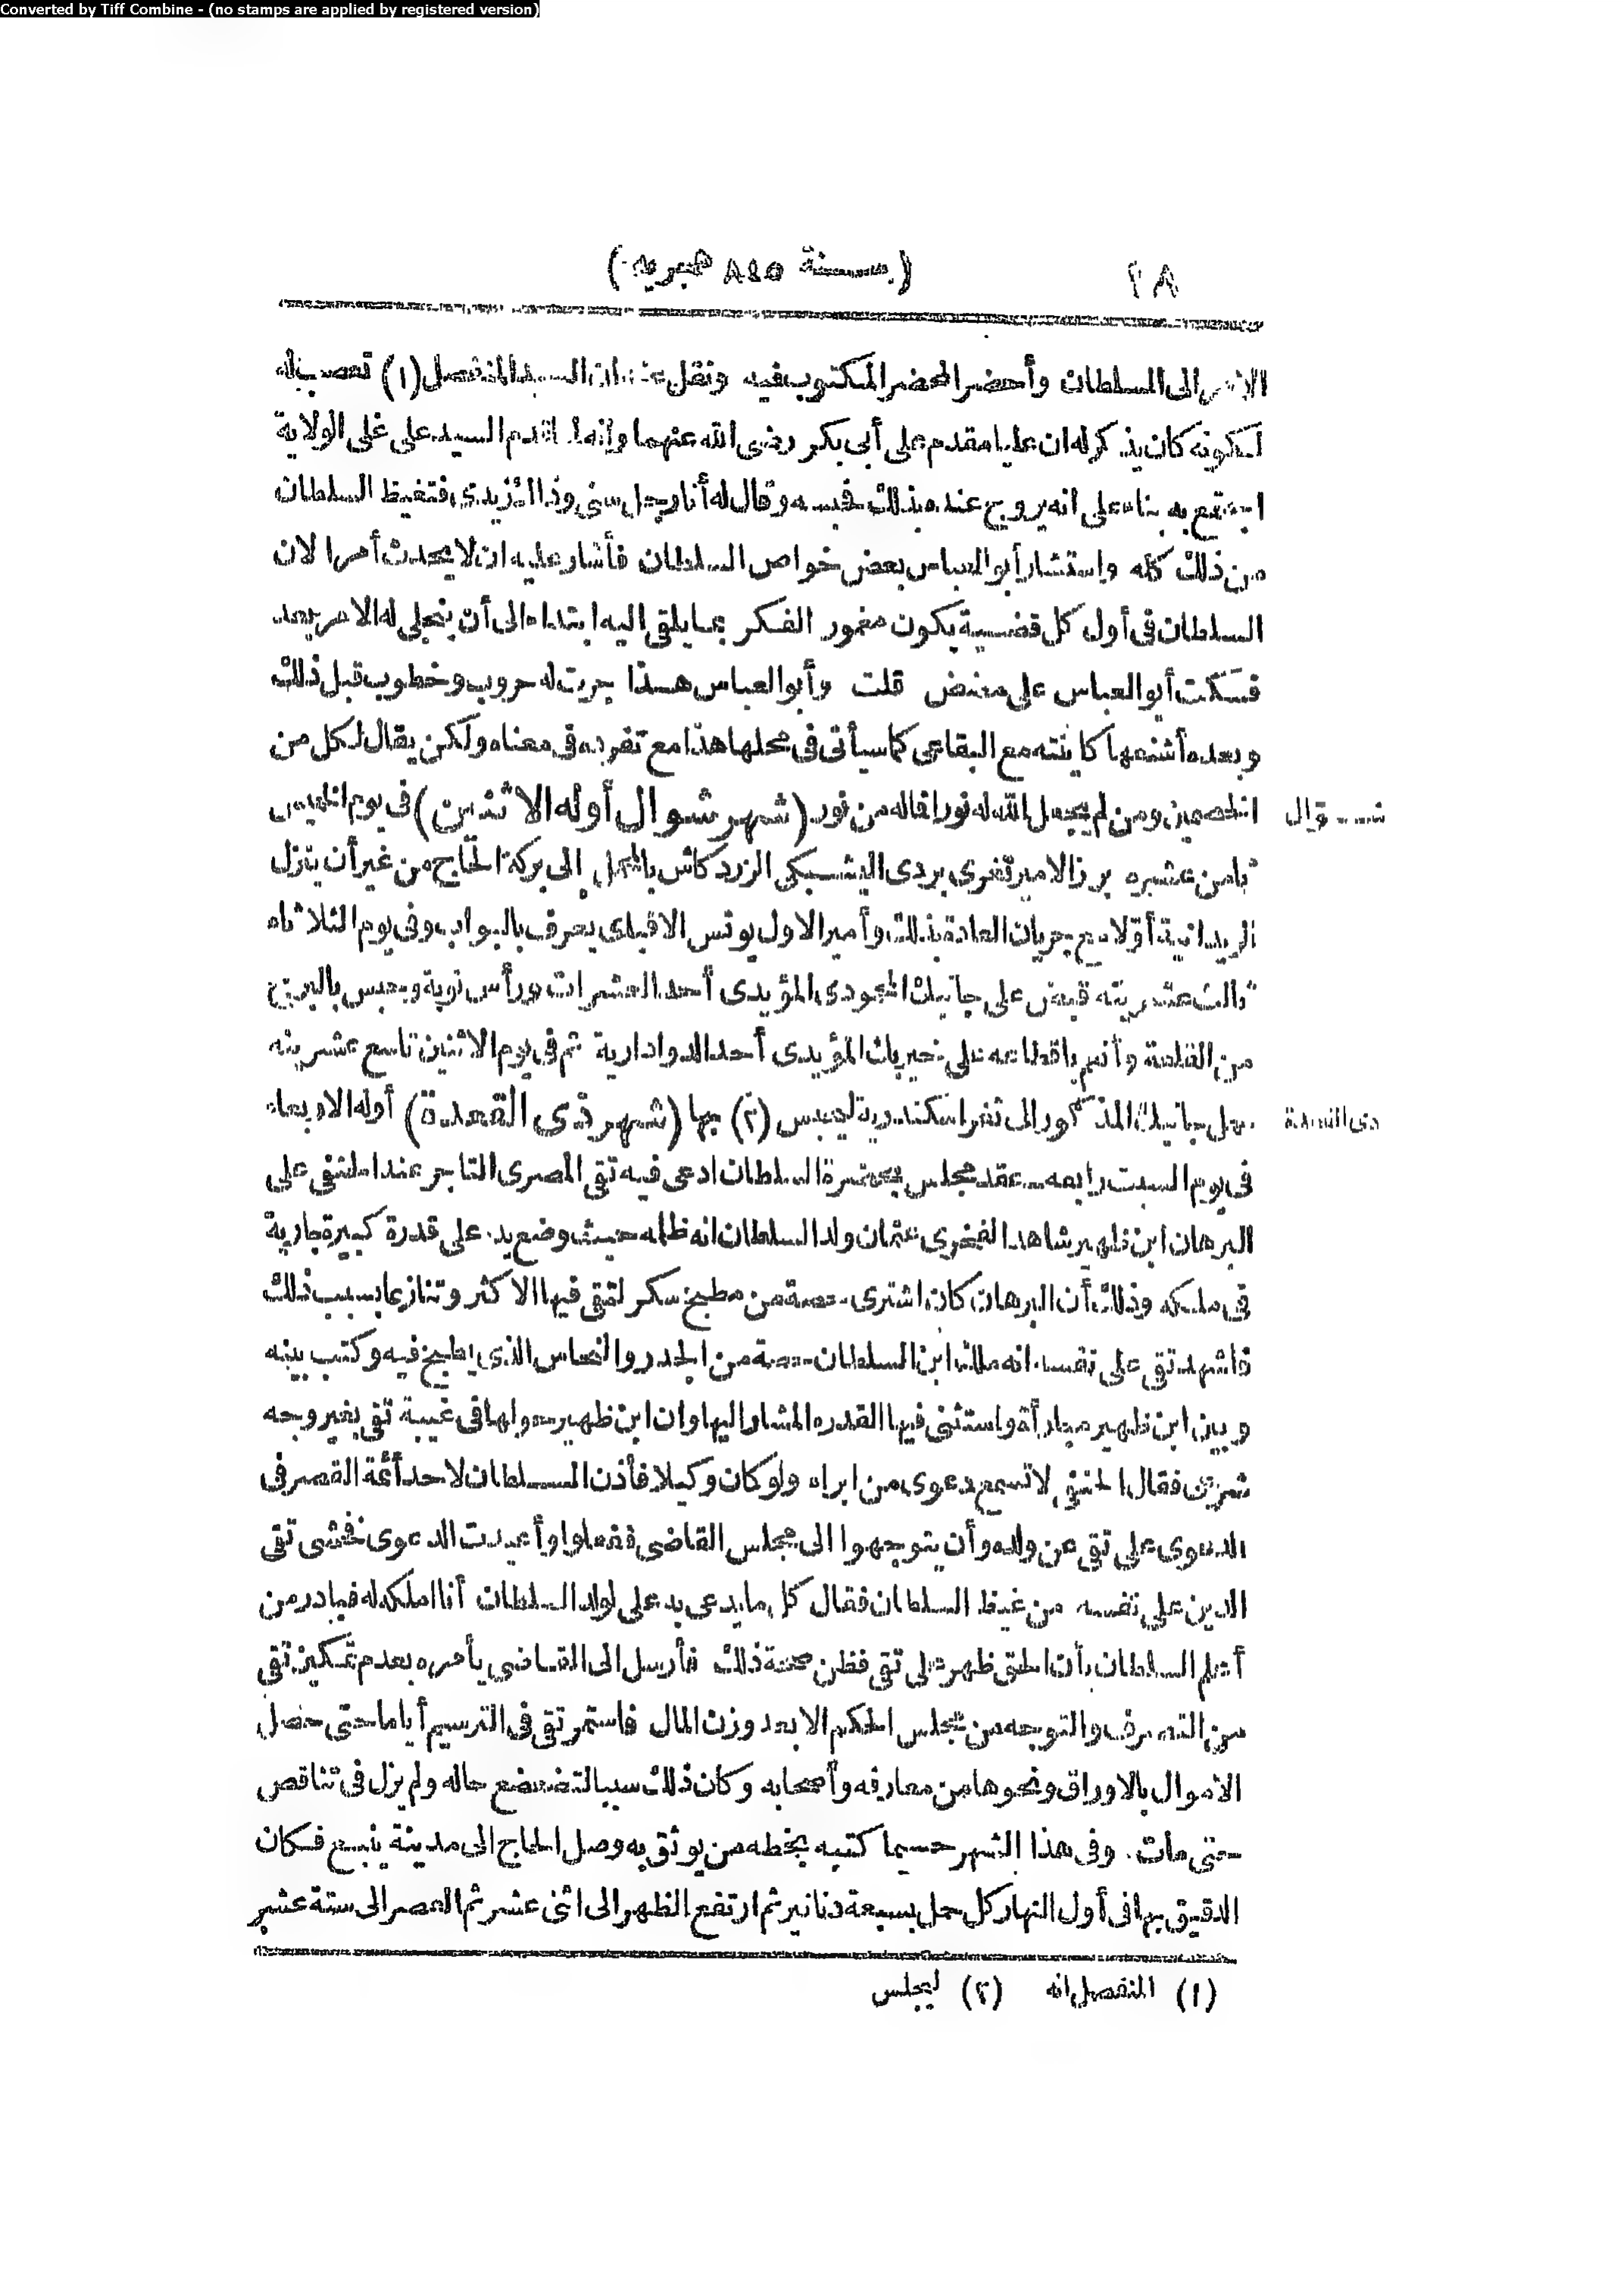 Converted by Tiff Combine - (no stamps are applied by registered version)
٢٨ (سنة ٨٤٥ هجرية)
الى السلطان وأحضر المحضر المكتوب فيه ونقل ان السيد المنفصل (١) تعصب له
لكونه كان يذكر له ان عليا مقدم على أبى بكر رضى الله عنهما وانه لما قدم السيد على على الولاية
اجتمع به بناء على انه يروج عنده بذلك فحبسه وقال له أنا رجل سنى وذاك زيدى فتغيظ السلطان
من ذلك كله واستشار أبو العباس بعض خواص السلطان فأشار عليه ان لا يحدث أمرا لان
السلطان فى أول كل قضية يكون مغمور الفكر بما يلقى اليه ابتداء الى أن ينجلى له الامر بعد
فسكت أبو العباس على مضض قلت وأبو العباس هذا جرت له حروب وخطوب قبل ذلك
وبعده أشنعها كائنته مع البقاعى كما سيأتى فى محلها هذا مع تفرده فى معناه ولكن يقال لكل من
الخصمين ومن لم يجعل الله له نورا فماله من نور (شهر شوال أوله الاثنين) فى يوم الخميس
شوال
ثامن عشره برز الامير تغرى بردى اليشبكى الزردكاش بالمحمل الى بركة الحاج من غير أن ينزل
الريدانية أولا مع جريان العادة بذلك وأمير الاول يونس الاقباى يعرف بالبواب وفى يوم الثلاثاء
ثالث عشرينه قبض على جانبك المحمودى المؤيدى أحد العشرات ورأس نوبة وحبس بالبرج
من القلعة وأنعم باقطاعه على خير بك المؤيدى أحد الدوادارية ثم فى يوم الاثنين تاسع عشرينه
حمل جانبك المذكور الى ثغر اسكندرية ليحبس (٢) بها (شهر ذى القعدة) أوله الاربعاء
ذى القعدة
فى يوم السبت رابعه عقد مجلس بحضرة السلطان ادعى فيه تقى المصرى التاجر عند الحنفى على
البرهان ابن ظهير شاهد الفخرى عثمان ولد السلطان انه ظلمه حيث وضع يده على قدرة كبيرة جارية
فى ملكه وذلك أن البرهان كان اشترى حصة من مطبخ سكر لتقى فيها الاكثر وتنازعا بسبب ذلك
فاشهد تقى على نفسه انه ملك ابن السلطان حصة من الجدر والنحاس الذى يطبخ فيه وكتب بينه
وبين ابن ظهير مبارأة واستثنى فيها القدرة المشار اليها وان ابن ظهير حولها فى غيبة تقى بغير وجه
شرعى فقال الحنفى لا تسمع دعوى من ابراه ولو كان وكيلا فأذن السلطان لاحد أئمة القصر فى
الدعوى على تقى عن ولده وأن يتوجهوا الى مجلس القاضى ففعلوا وأعيدت الدعوى فخشى تقى
الدين على نفسه من غيظ السلطان فقال كل ما يدعى به على لولد السلطان أنا املكه له فبادر من
أعلم السلطان بأن الحق ظهر على تقى فظن صحة ذلك فأرسل الى القاضى يأمره بعدم تمكين تقى
من التصرف والتوجه من مجلس الحكم الا بعد وزن المال فاستمر تقى فى الترسيم أياما حتى حصل
الاموال بالاوراق ونحوها من معارفه وأصحابه وكان ذلك سببا لتضعضع حاله ولم يزل فى تناقص
حتى مات. وفى هذا الشهر حسبما كتبه بخطه من يوثق به وصل الحاج الى مدينة ينبع فكان
الدقيق بها فى أول النهار كل حمل بسبعة دنانير ثم ارتفع الظهر الى اثنى عشر ثم العصر الى ستة عشر
(١) المنفصل انه (٢) ليجلس